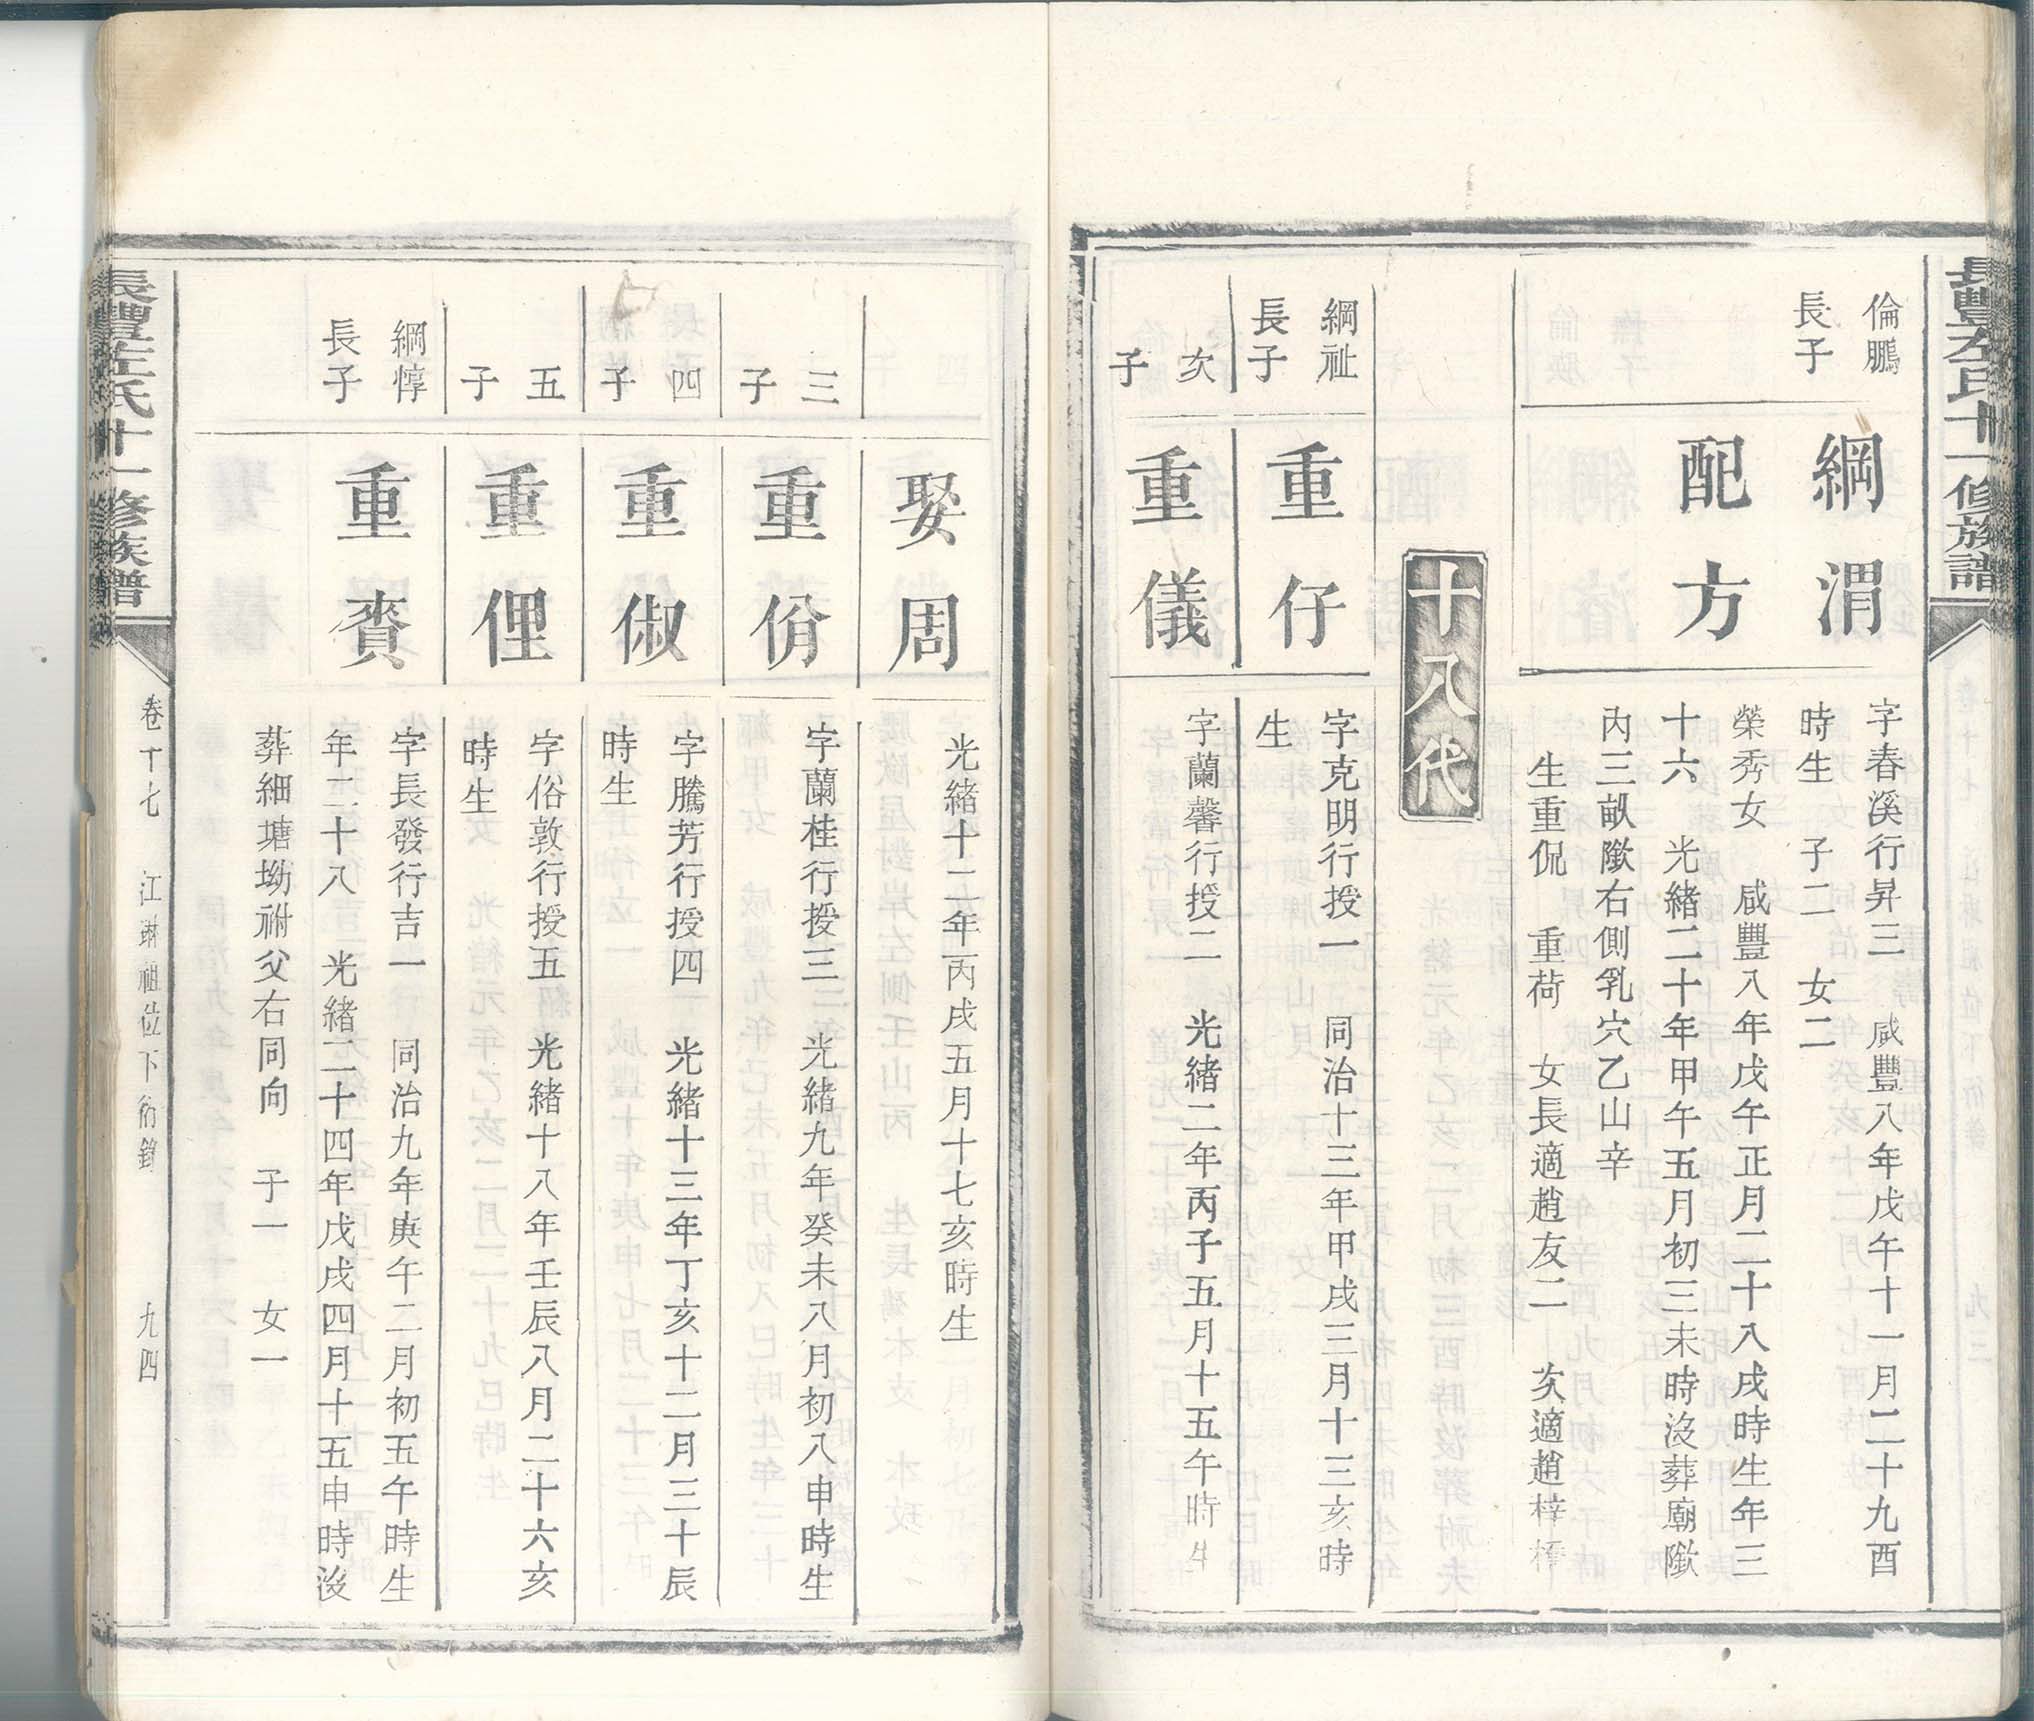 長豐左氏十一修族譜
倫鵬
長子
綱渭
字春溪行昇三　咸豐八年戊午十一月二十九酉
時生　子二　女二
配方
榮秀女　咸豐八年戊午正月二十八戌時生年三
十六　光緒二十年甲午五月初三未時沒葬廟隞
內三畝隞右側乳穴乙山辛
生重侃　重荷　女長適趙友二　次適趙梓
十八代
綱祉
長子
重仔
字克明行授一　同治十三年甲戌三月十三亥時
生
次
子
重儀
字蘭馨行授二　光緒二年丙子五月十五午時生
娶周
光緒十二年丙戌五月十七亥時生
三
子
重佾
字蘭桂行授三　光緒九年癸未八月初八申時生
四
子
重俶
字騰芳行授四　光緒十三年丁亥十二月三十辰
時生
五
子
重俚
字俗敦行授五　光緒十八年壬辰八月二十六亥
時生
綱惇
長子
重賚
字長發行吉一　同治九年庚午二月初五午時生
年二十八　光緒二十四年戊戌四月十五申時沒
葬細塘坳祔父右同向　子一　女一
長豐左氏十一修族譜
卷十七
江琳祖位下衍錄
九四